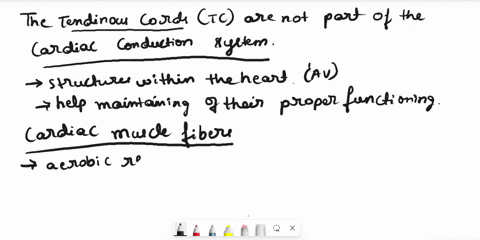 The Tendinous Cords (TC) are not part of the
Cardiac Conduction system.
→ structures within the heart. (AV)
→ help maintaining of their proper functioning.
Cardiac muscle fibers
→ aerobic